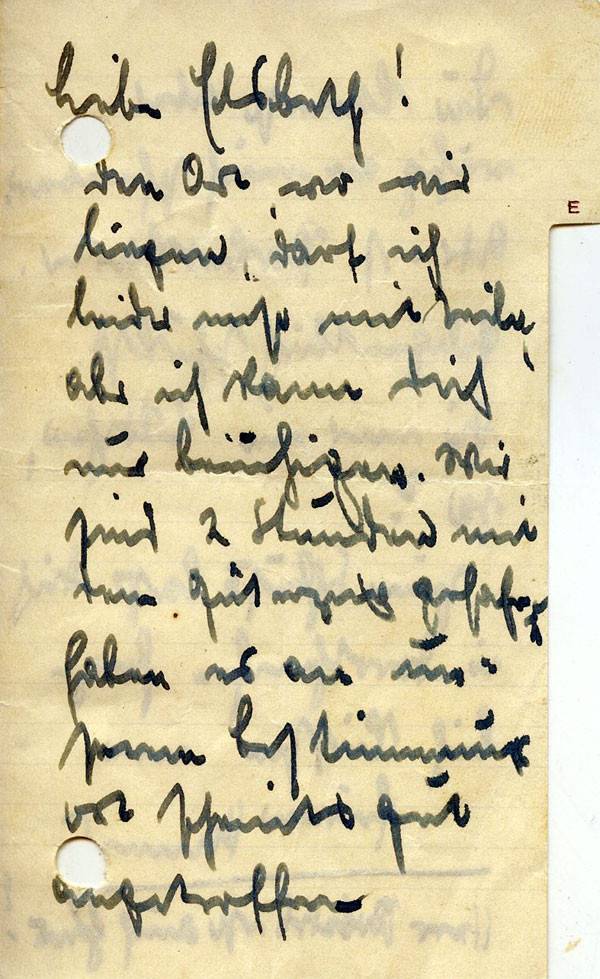 Liebe Elsbeth!
den Ort wo wir
liegen, darf ich
leider nicht mitteilen,
aber ich kann Dich
nur beruhigen. Wir
sind 2 Stunden mit
dem Güterzug gefahren
haben es an un-
serem Bestimmungs
ort scheints gut
angetroffen
E